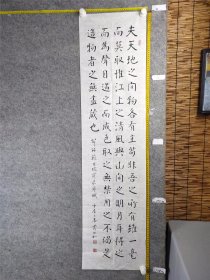 夫天地之间物各有主苟非吾之所有虽一毫
而莫取惟江上之清風與山间之明月耳得之
而爲聲目遇之而成色取之無禁用之不竭是
造物者之無盡藏也